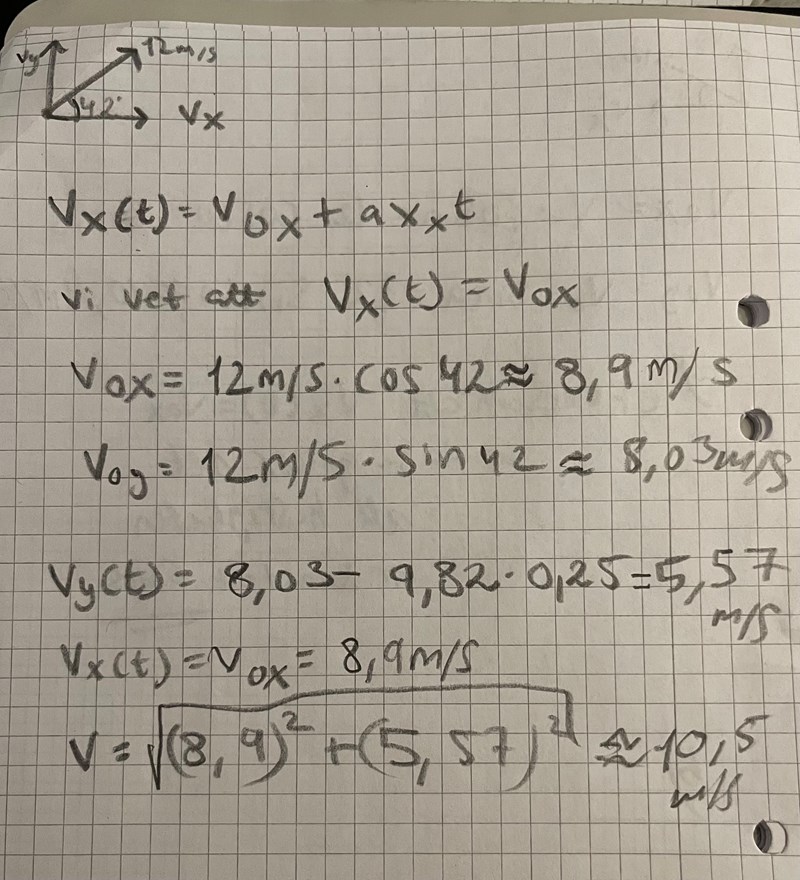 Vy 12m/s
42° Vx
Vx(t) = V0x + ax x t
vi vet att Vx(t) = V0x
V0x = 12m/s · cos 42 ≈ 8,9 m/s
V0y = 12m/s · sin 42 ≈ 8,03 m/s
Vy(t) = 8,03 - 9,82 · 0,25 = 5,57 m/s
Vx(t) = V0x = 8,9 m/s
V = √(8,9)² + (5,57)² ≈ 10,5 m/s